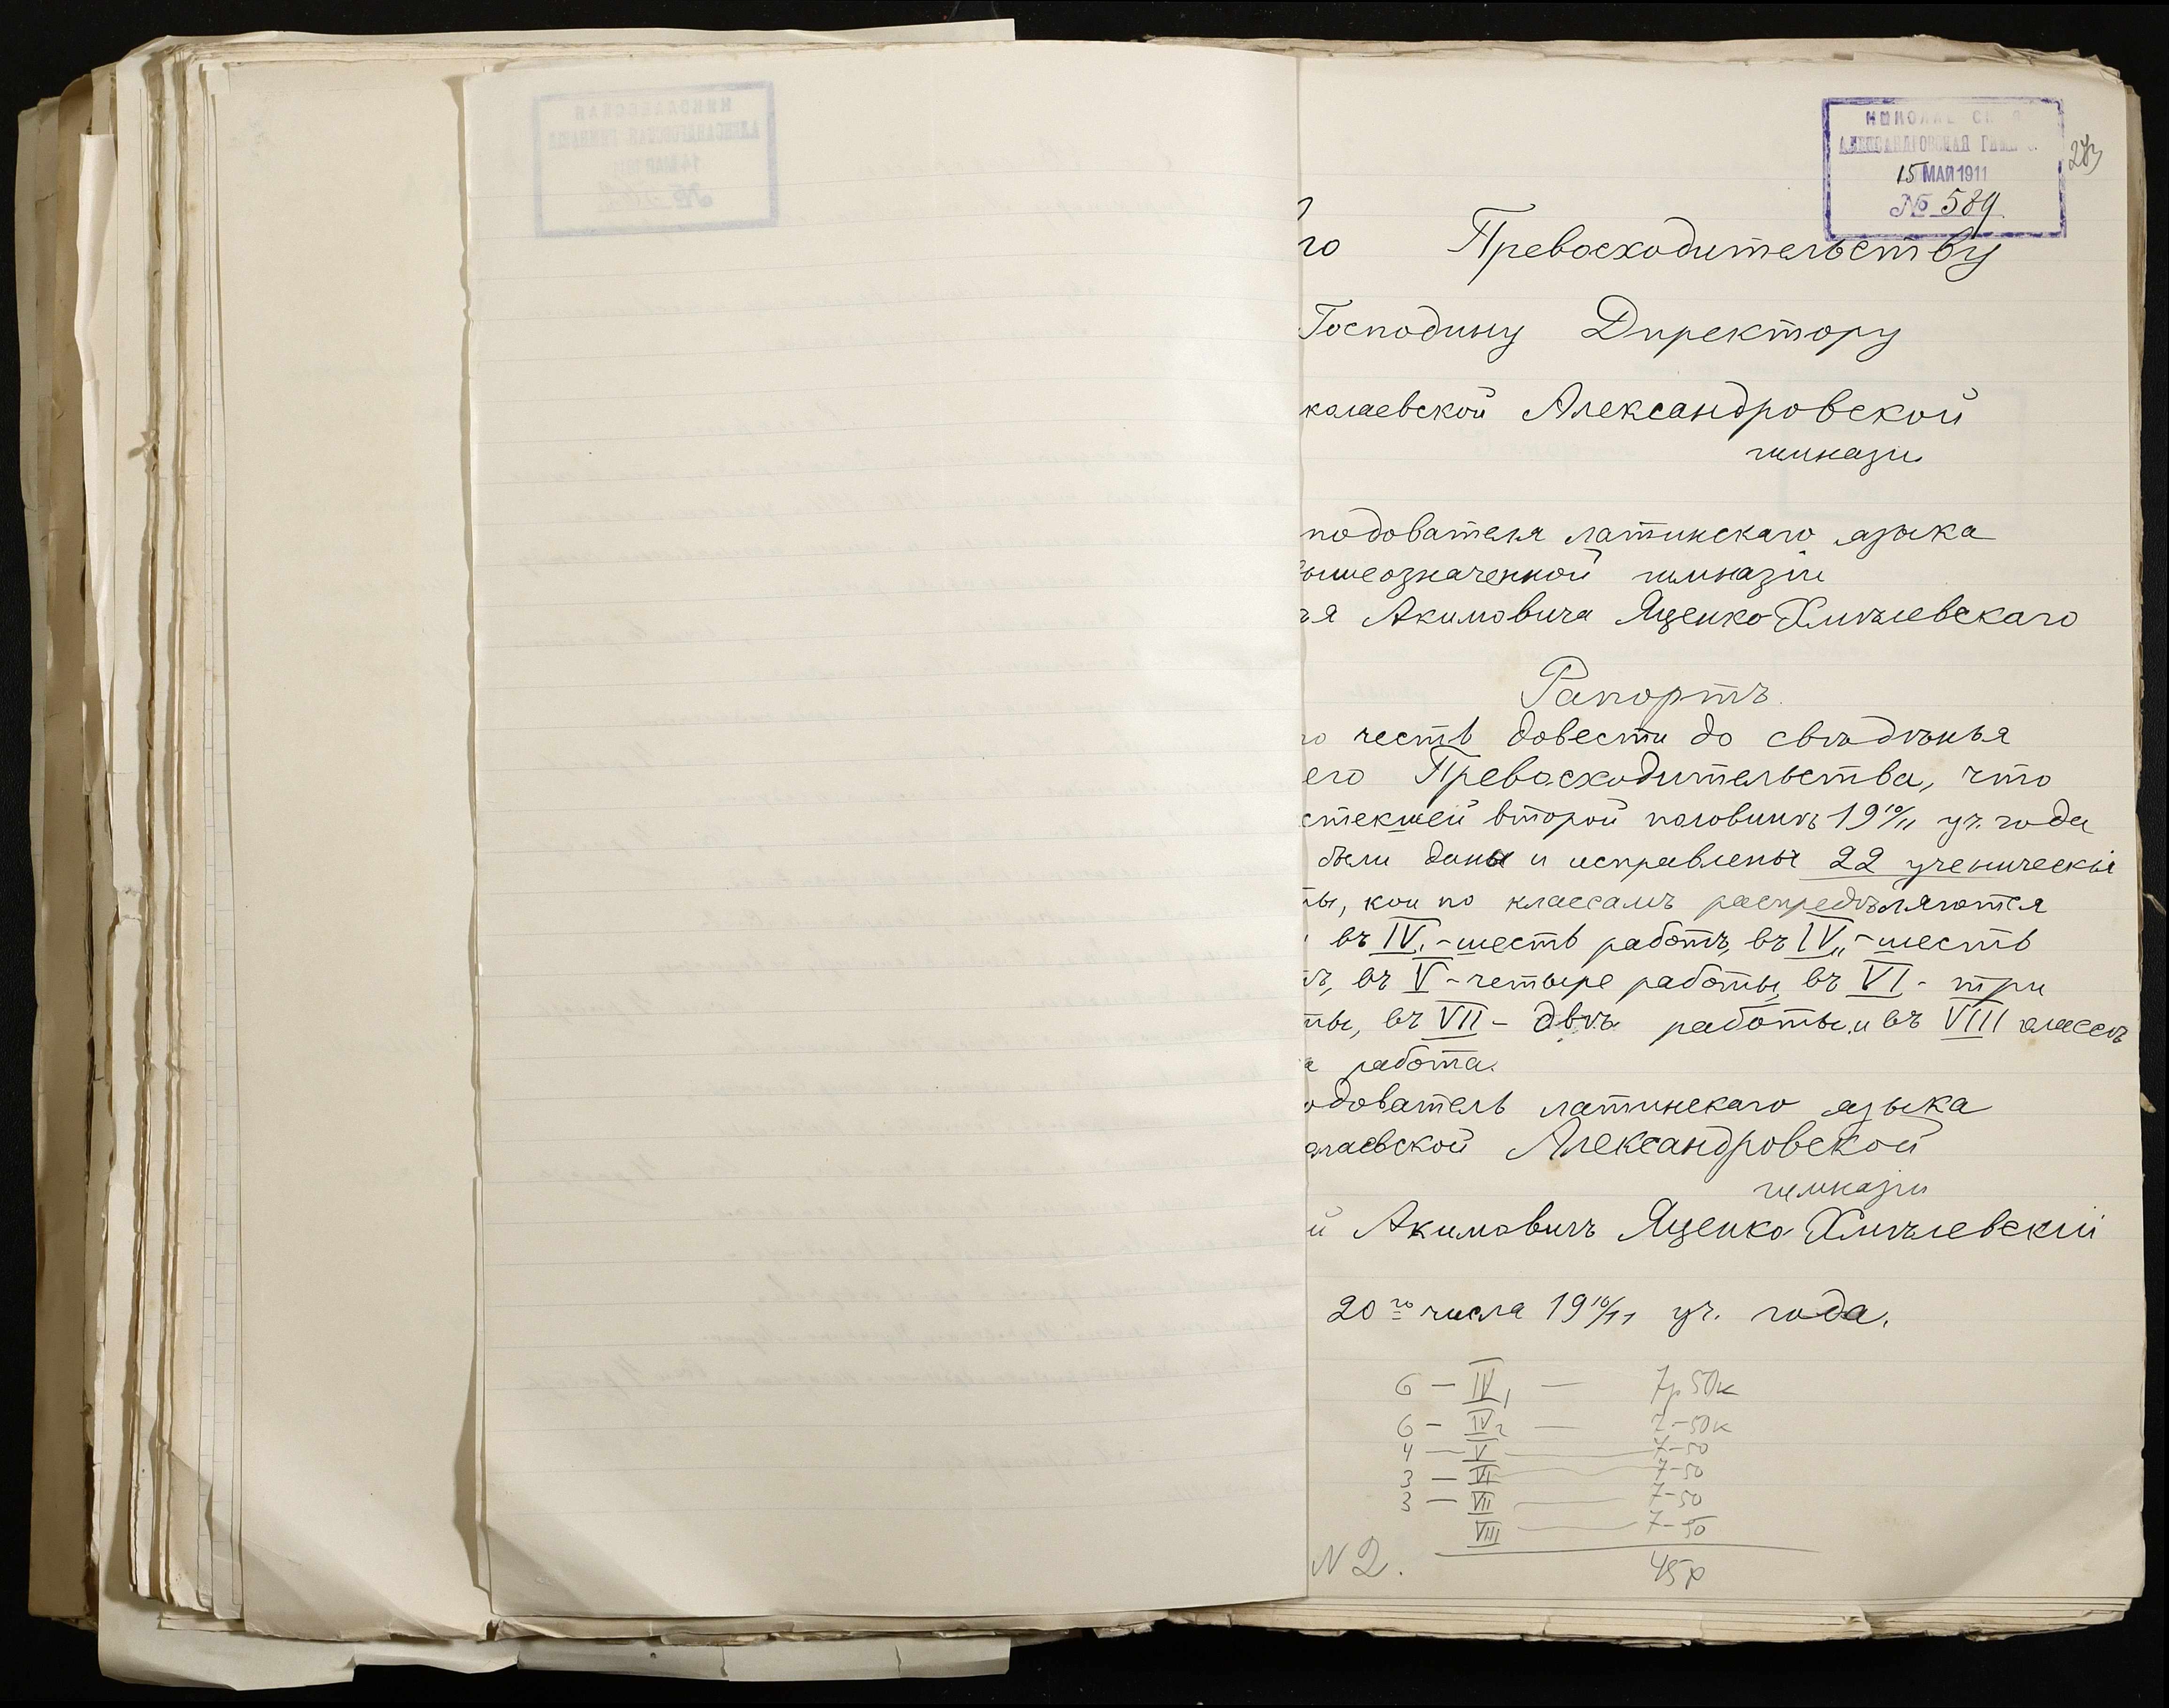 НИКОЛАЕВСКАЯ
АЛЕКСАНДРОВСКАЯ ГИМНАЗІЯ
14 МАЙ 1911
НИКОЛАЕВСКАЯ
АЛЕКСАНДРОВСКАЯ ГИМНАЗІЯ
15 МАЙ 1911
№ 589
283
го Превосходительству
Господину Директору
колаевской Александровской
гимназіи
подователя латинскаго языка
вышеозначенной гимназіи
ія Акимовича Яценко-Хмѣлевскаго
Рапортъ.
ю честь довести до свѣдѣнья
его Превосходительства, что
стекшей второй половинѣ 19 10/11 уч. года
были даны и исправлены 22 ученическія
ты, кои по классамъ распредѣляются
въ IV₁ - шесть работъ, въ IV₁₁ - шесть
тъ, въ V - четыре работы, въ VI - три
ты, въ VII - двѣ работы и въ VIII классѣ
а работа.
одователь латинскаго языка
олаевской Александровской
гимназіи
й Акимовичъ Яценко-Хмѣлевскій
20го числа 19 10/11 уч. года.
6 — IV₁ — 7р 50к
6 — IV₂ — 7-50к
4 — V — 7-50
3 — VI — 7-50
3 — VII — 7-50
VIII — 7-50
N 2. 45р